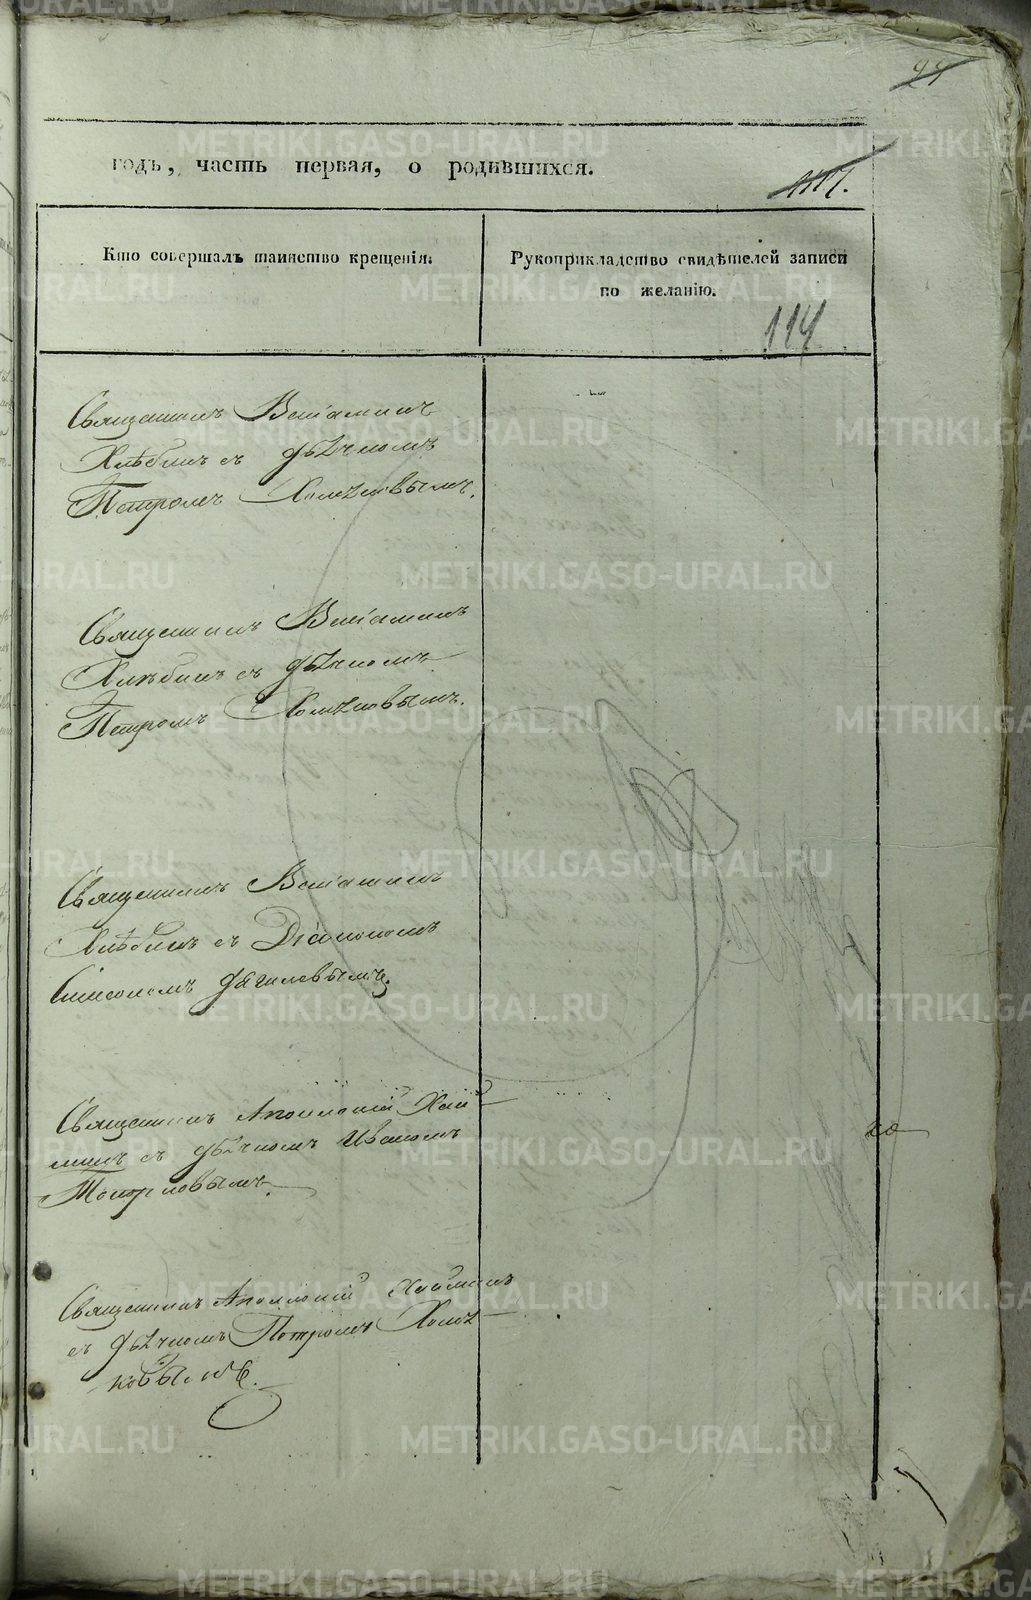 94
годъ, часть первая, о родившихся.
Кто совершалъ таинство крещенія.
Рукоприкладство свидѣтелей записи
по желанію.
114
Священникъ Веніаминъ
Хлѣбинъ съ дьячкомъ
Петромъ Хомяковымъ.
Священникъ Веніаминъ
Хлѣбинъ съ дьячкомъ
Петромъ Хомяковымъ.
Священникъ Веніаминъ
Хлѣбинъ съ Діакономъ
Симеономъ Дягилевымъ.
Священникъ Аполлоній
съ дьячкомъ Иваномъ
Священникъ Аполлоній
съ дьячкомъ Петромъ Хомя-
ковымъ.
METRIKI.GASO-URAL.RU